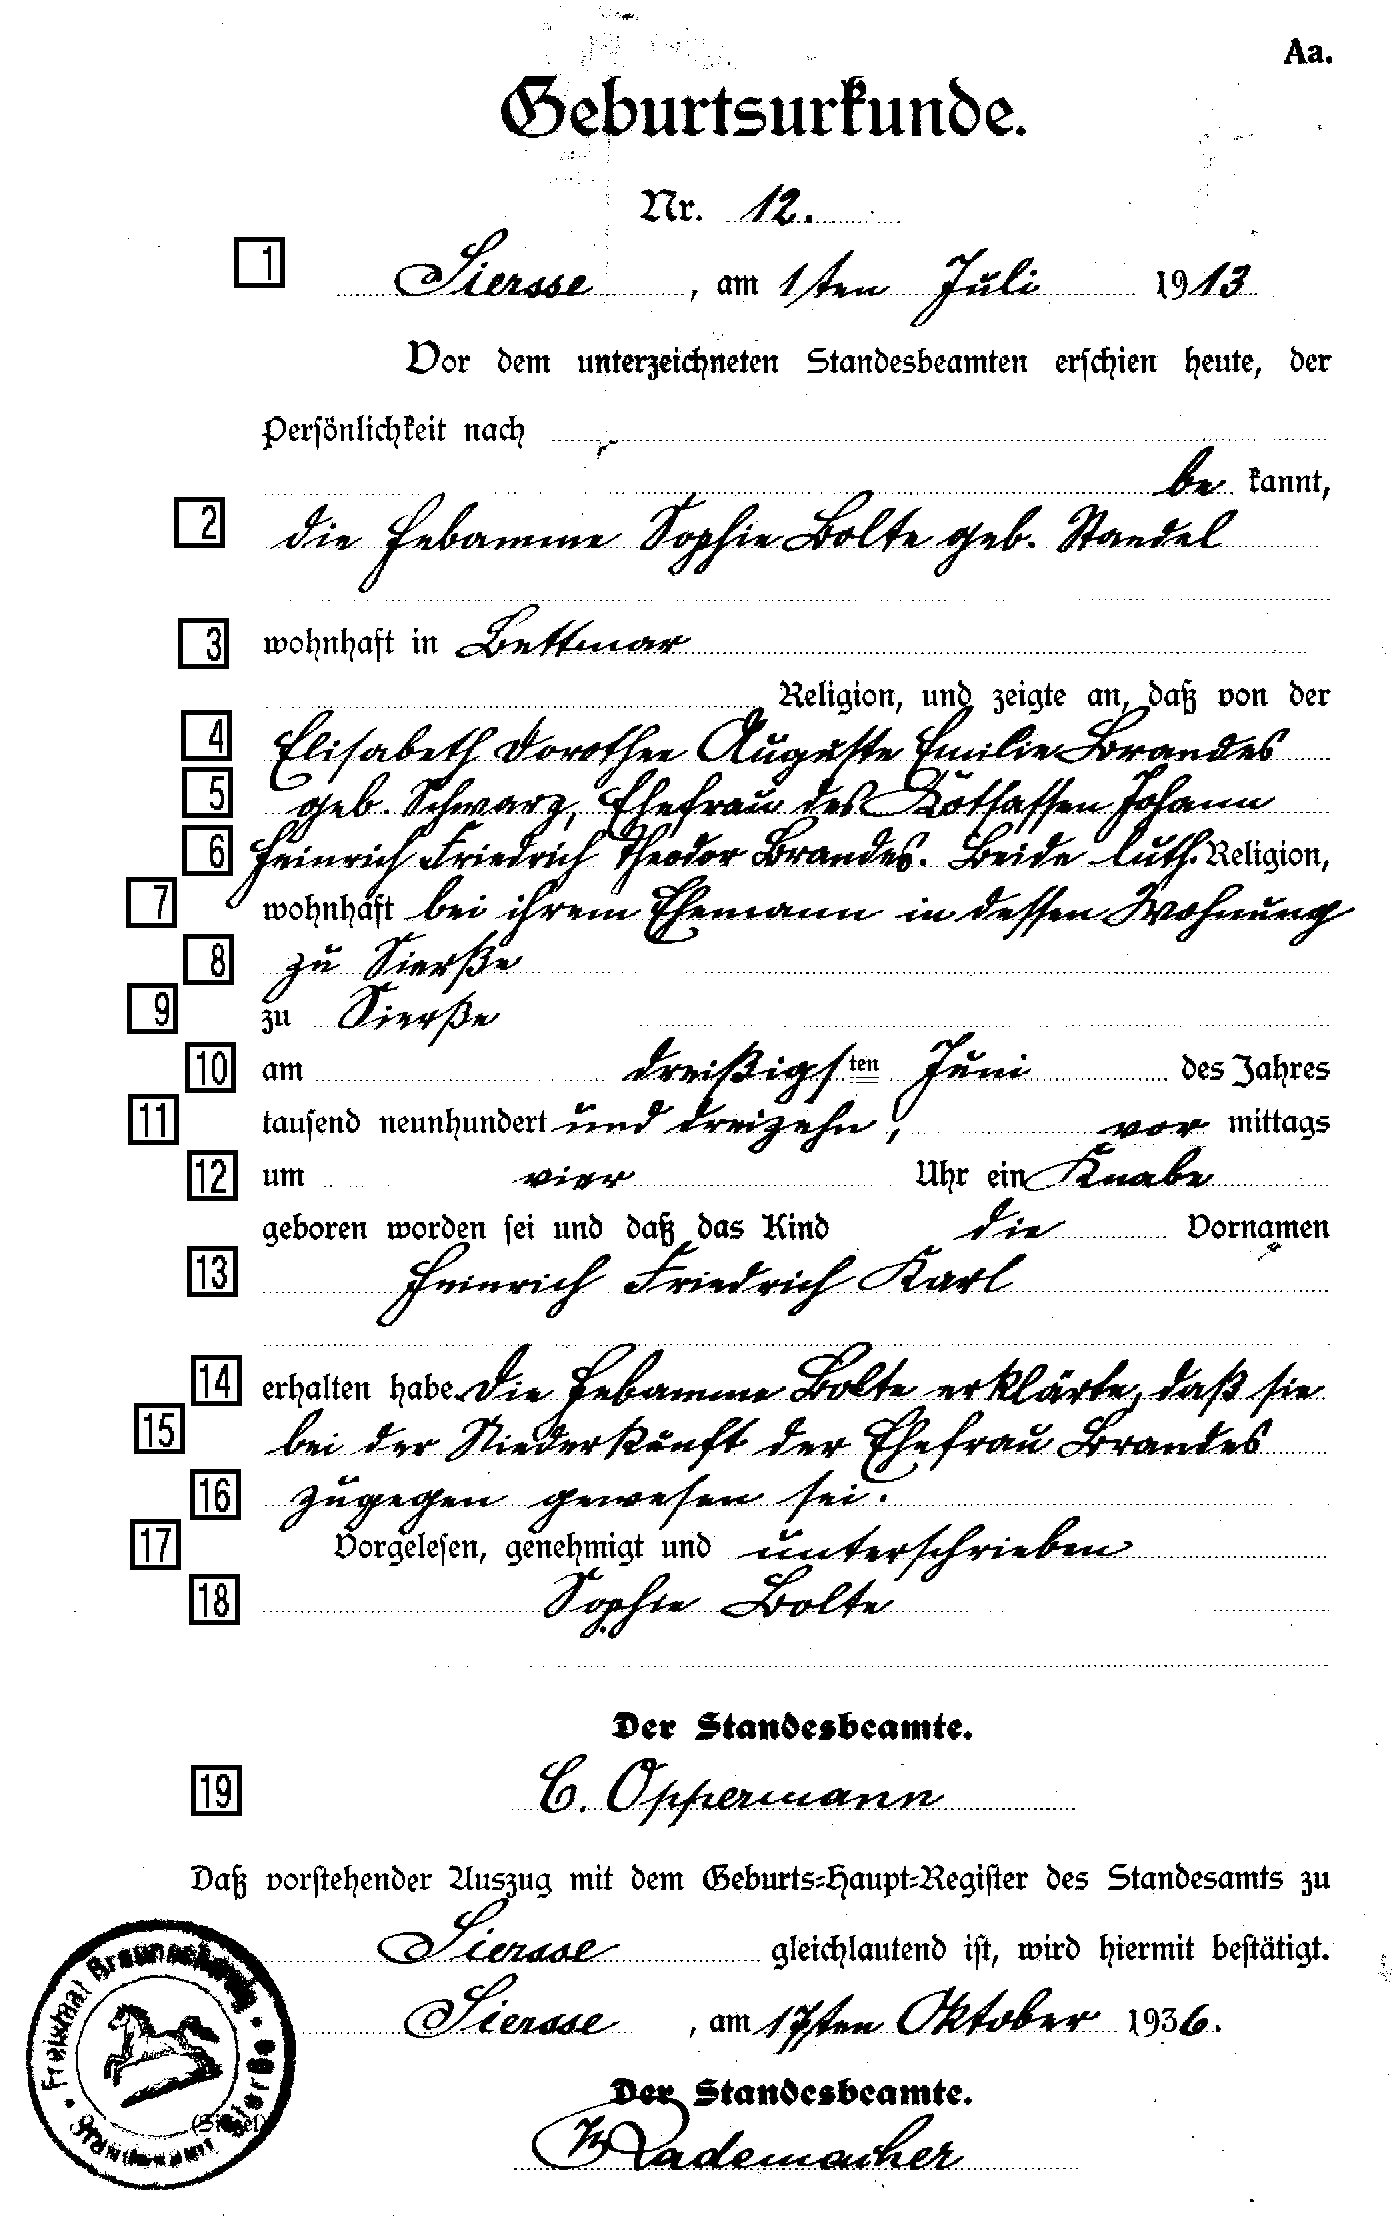 Aa.
Geburtsurkunde.
Nr. 12.
1 Siersse, am 1ten Juli 1913
Vor dem unterzeichneten Standesbeamten erschien heute, der
Persönlichkeit nach
be kannt,
2 die Hebamme Sophie Bolte geb. Standel
3 wohnhaft in Bettmar
Religion, und zeigte an, daß von der
4 Elisabeth Dorothee Auguste Emilie Brandes
5 geb. Schwarz, Ehefrau des Kotsassen Johann
6 Heinrich Friedrich Theodor Brandes. Beide luth. Religion,
7 wohnhaft bei ihrem Ehemann in dessen Wohnung
8 zu Sierße
9 zu Sierße
10 am dreißigsten Juni des Jahres
11 tausend neunhundert und dreizehn, vor mittags
12 um vier Uhr ein Knabe
geboren worden sei und daß das Kind die Vornamen
13 Heinrich Friedrich Karl
14 erhalten habe. Die Hebamme Bolte erklärte, daß sie
15 bei der Niederkunft der Ehefrau Brandes
16 zugegen gewesen sei.
17 Vorgelesen, genehmigt und unterschrieben
18 Sophie Bolte
Der Standesbeamte.
19 C. Oppermann
Daß vorstehender Auszug mit dem Geburts-Haupt-Register des Standesamts zu
Siersse gleichlautend ist, wird hiermit bestätigt.
Siersse, am 17ten Oktober 1936.
Der Standesbeamte.
Rademacher
(Siegel)
Freistaat Braunschweig
Standesamt Sierße